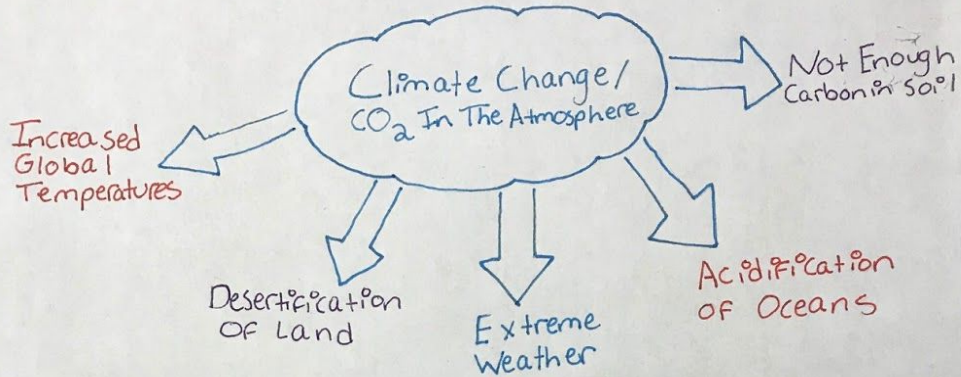 Climate Change/
CO₂ In The Atmosphere
Not Enough
Carbon in Soil
Increased
Global
Temperatures
Desertification
Of Land
Extreme
Weather
Acidification
of Oceans